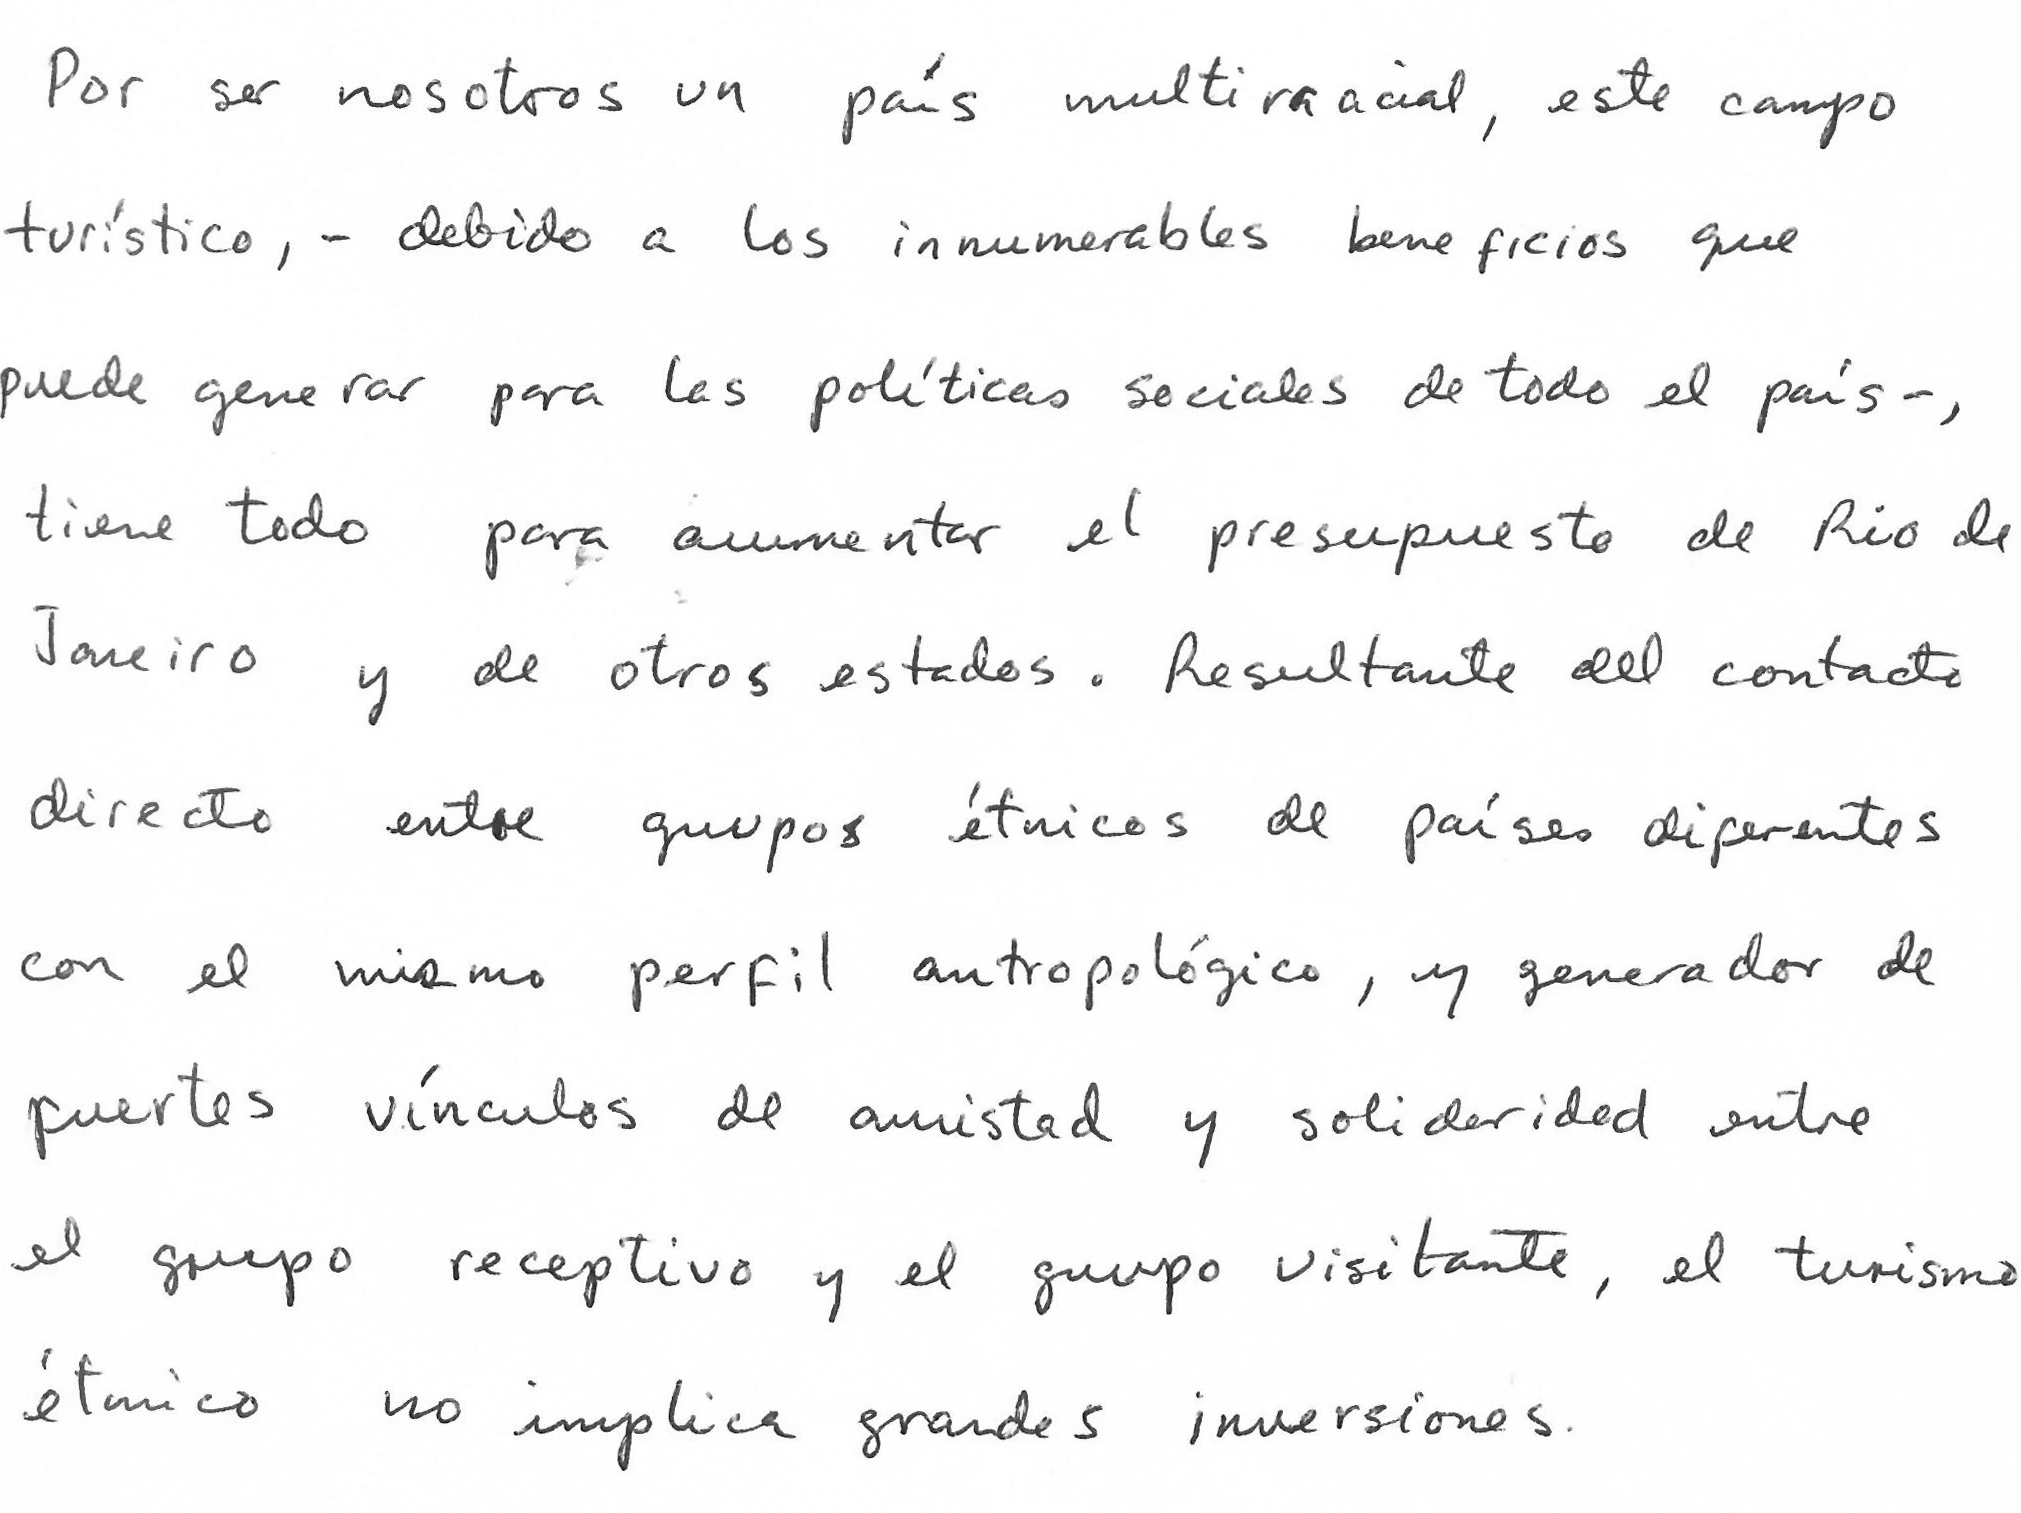 Por ser nosotros un país multiraacial, este campo
turístico, - debido a los innumerables beneficios que
puede generar para las políticas sociales de todo el país -,
tiene todo para aumentar el presupuesto de Rio de
Janeiro y de otros estados. Resultante del contacto
directo entre grupos étnicos de países diferentes
con el mismo perfil antropológico, y generador de
fuertes vínculos de amistad y solidaridad entre
el grupo receptivo y el grupo visitante, el turismo
étnico no implica grandes inversiones.